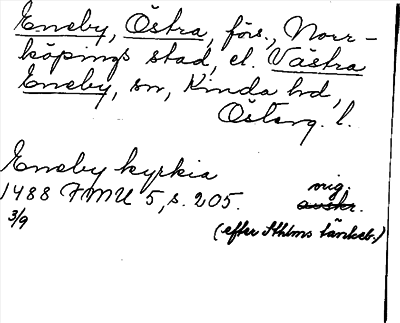 Eneby, Östra, förs., Norr-
köpings stad, el. Västra
Eneby, sn, Kinda hd,
Österg. l.
Eneby kyrkia
1488 FMU 5, s. 205. orig.
avskr.
3/9
(efter Sthlms tänkeb.)